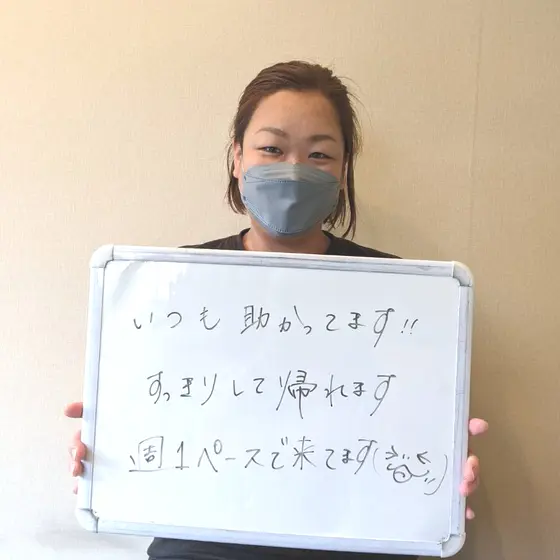 いつも助かってます!!
すっきりして帰れます
週1ペースで来てます